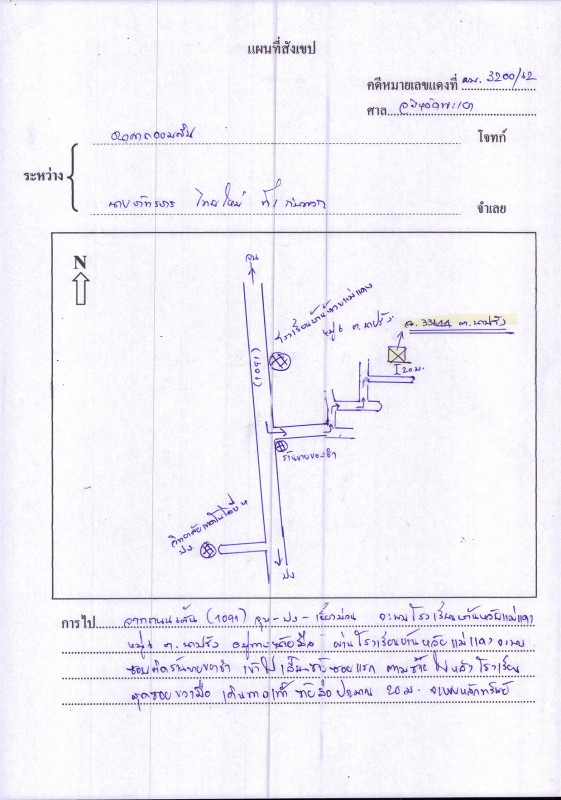 แผนที่สังเขป
คดีหมายเลขแดงที่ ผบ. 3200/42
ศาล จังหวัดพะเยา
ธนาคารออมสิน
โจทก์
ระหว่าง
นาย ไทยใหม่ ที่ 1 กับพวก
จำเลย
N
จุน
โรงเรียนบ้านห้วยแม่แดง
หมู่ 6 ต.นาปรัง
(1091)
ฉ. 33144 ต.นาปรัง
20 ม.
ร้านขายของชำ
วิทยาลัยเทคโนโลยี
ปง
ปง
การไป จากถนนเส้น (1091) จุน-ปง-เชียงม่วน จะพบโรงเรียนบ้านห้วยแม่แดง
หมู่ 6 ต.นาปรัง อยู่ทางซ้ายมือ ผ่านโรงเรียนบ้านห้วยแม่แดง จะพบ
ซอยติดร้านขายของชำ เข้าไป ซอยแรก ตามซ้ายไปหลังโรงเรียน
สุดซอยขวามือ เดินทางเท้า ซ้ายมือประมาณ 20 ม. จะพบหลักทรัพย์